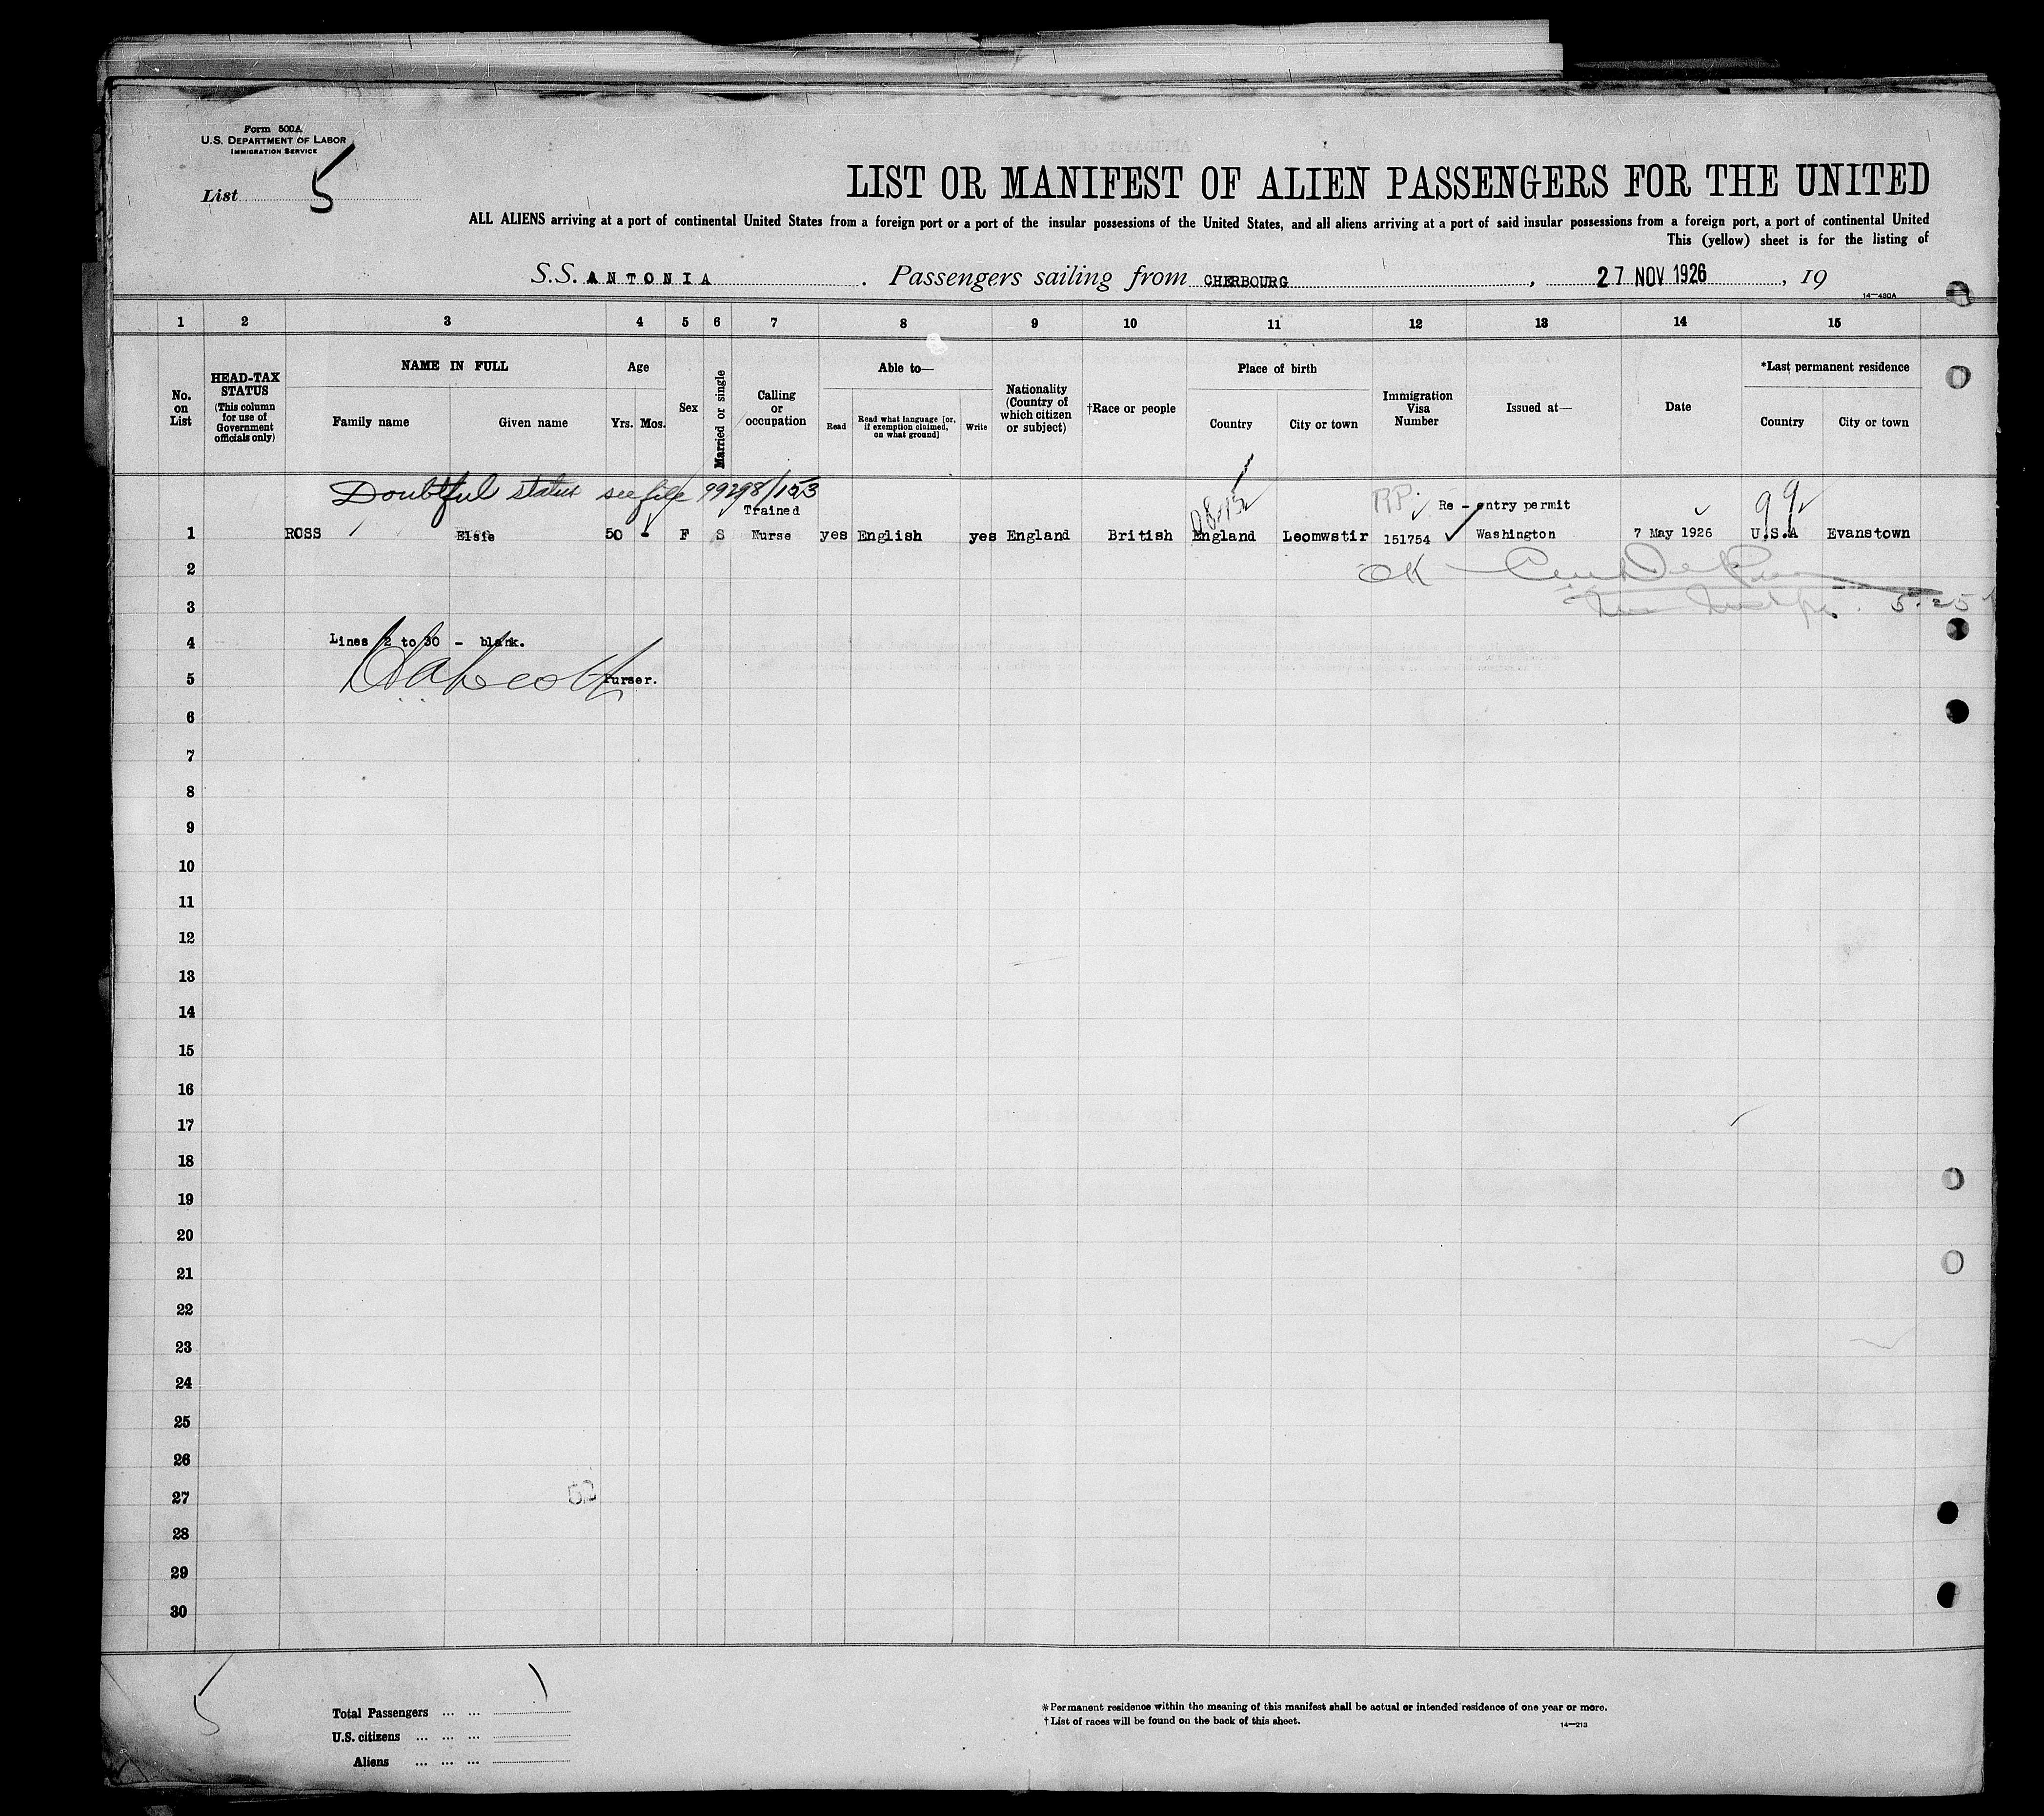 Form 500A
U.S. DEPARTMENT OF LABOR
IMMIGRATION SERVICE
List 5
LIST OR MANIFEST OF ALIEN PASSENGERS FOR THE UNITED
ALL ALIENS arriving at a port of continental United States from a foreign port or a port of the insular possessions of the United States, and all aliens arriving at a port of said insular possessions from a foreign port, a port of continental United
This (yellow) sheet is for the listing of
S.S. ANTONIA . Passengers sailing from CHERBOURG , 27 NOV 1926 , 19
14—430A
1 2 3 4 5 6 7 8 9 10 11 12 13 14 15
No. on List
HEAD-TAX STATUS (This column for use of Government officials only)
NAME IN FULL
Family name Given name
Age
Yrs. Mos.
Sex
Married or single
Calling or occupation
Able to—
Read
Read what language [or, if exemption claimed, on what ground]
Write
Nationality (Country of which citizen or subject)
†Race or people
Place of birth
Country City or town
Immigration Visa Number
Issued at—
Date
*Last permanent residence
Country City or town
Doubtful status see file 99298/1523
Trained
RP. Re-entry permit 99
1 ROSS Elsie 50 - F S Nurse yes English yes England British England Leomwstir 151754 Washington 7 May 1926 U.S.A Evanstown
2 OK
3 5-25
4 Lines 2 to 30 - blank.
5 Purser.
6
7
8
9
10
11
12
13
14
15
16
17
18
19
20
21
22
23
24
25
26
27 52
28
29
30
5
Total Passengers ... ... 1
U.S. citizens ... ... ...
Aliens ... ... ...
*Permanent residence within the meaning of this manifest shall be actual or intended residence of one year or more.
†List of races will be found on the back of this sheet.
14—213